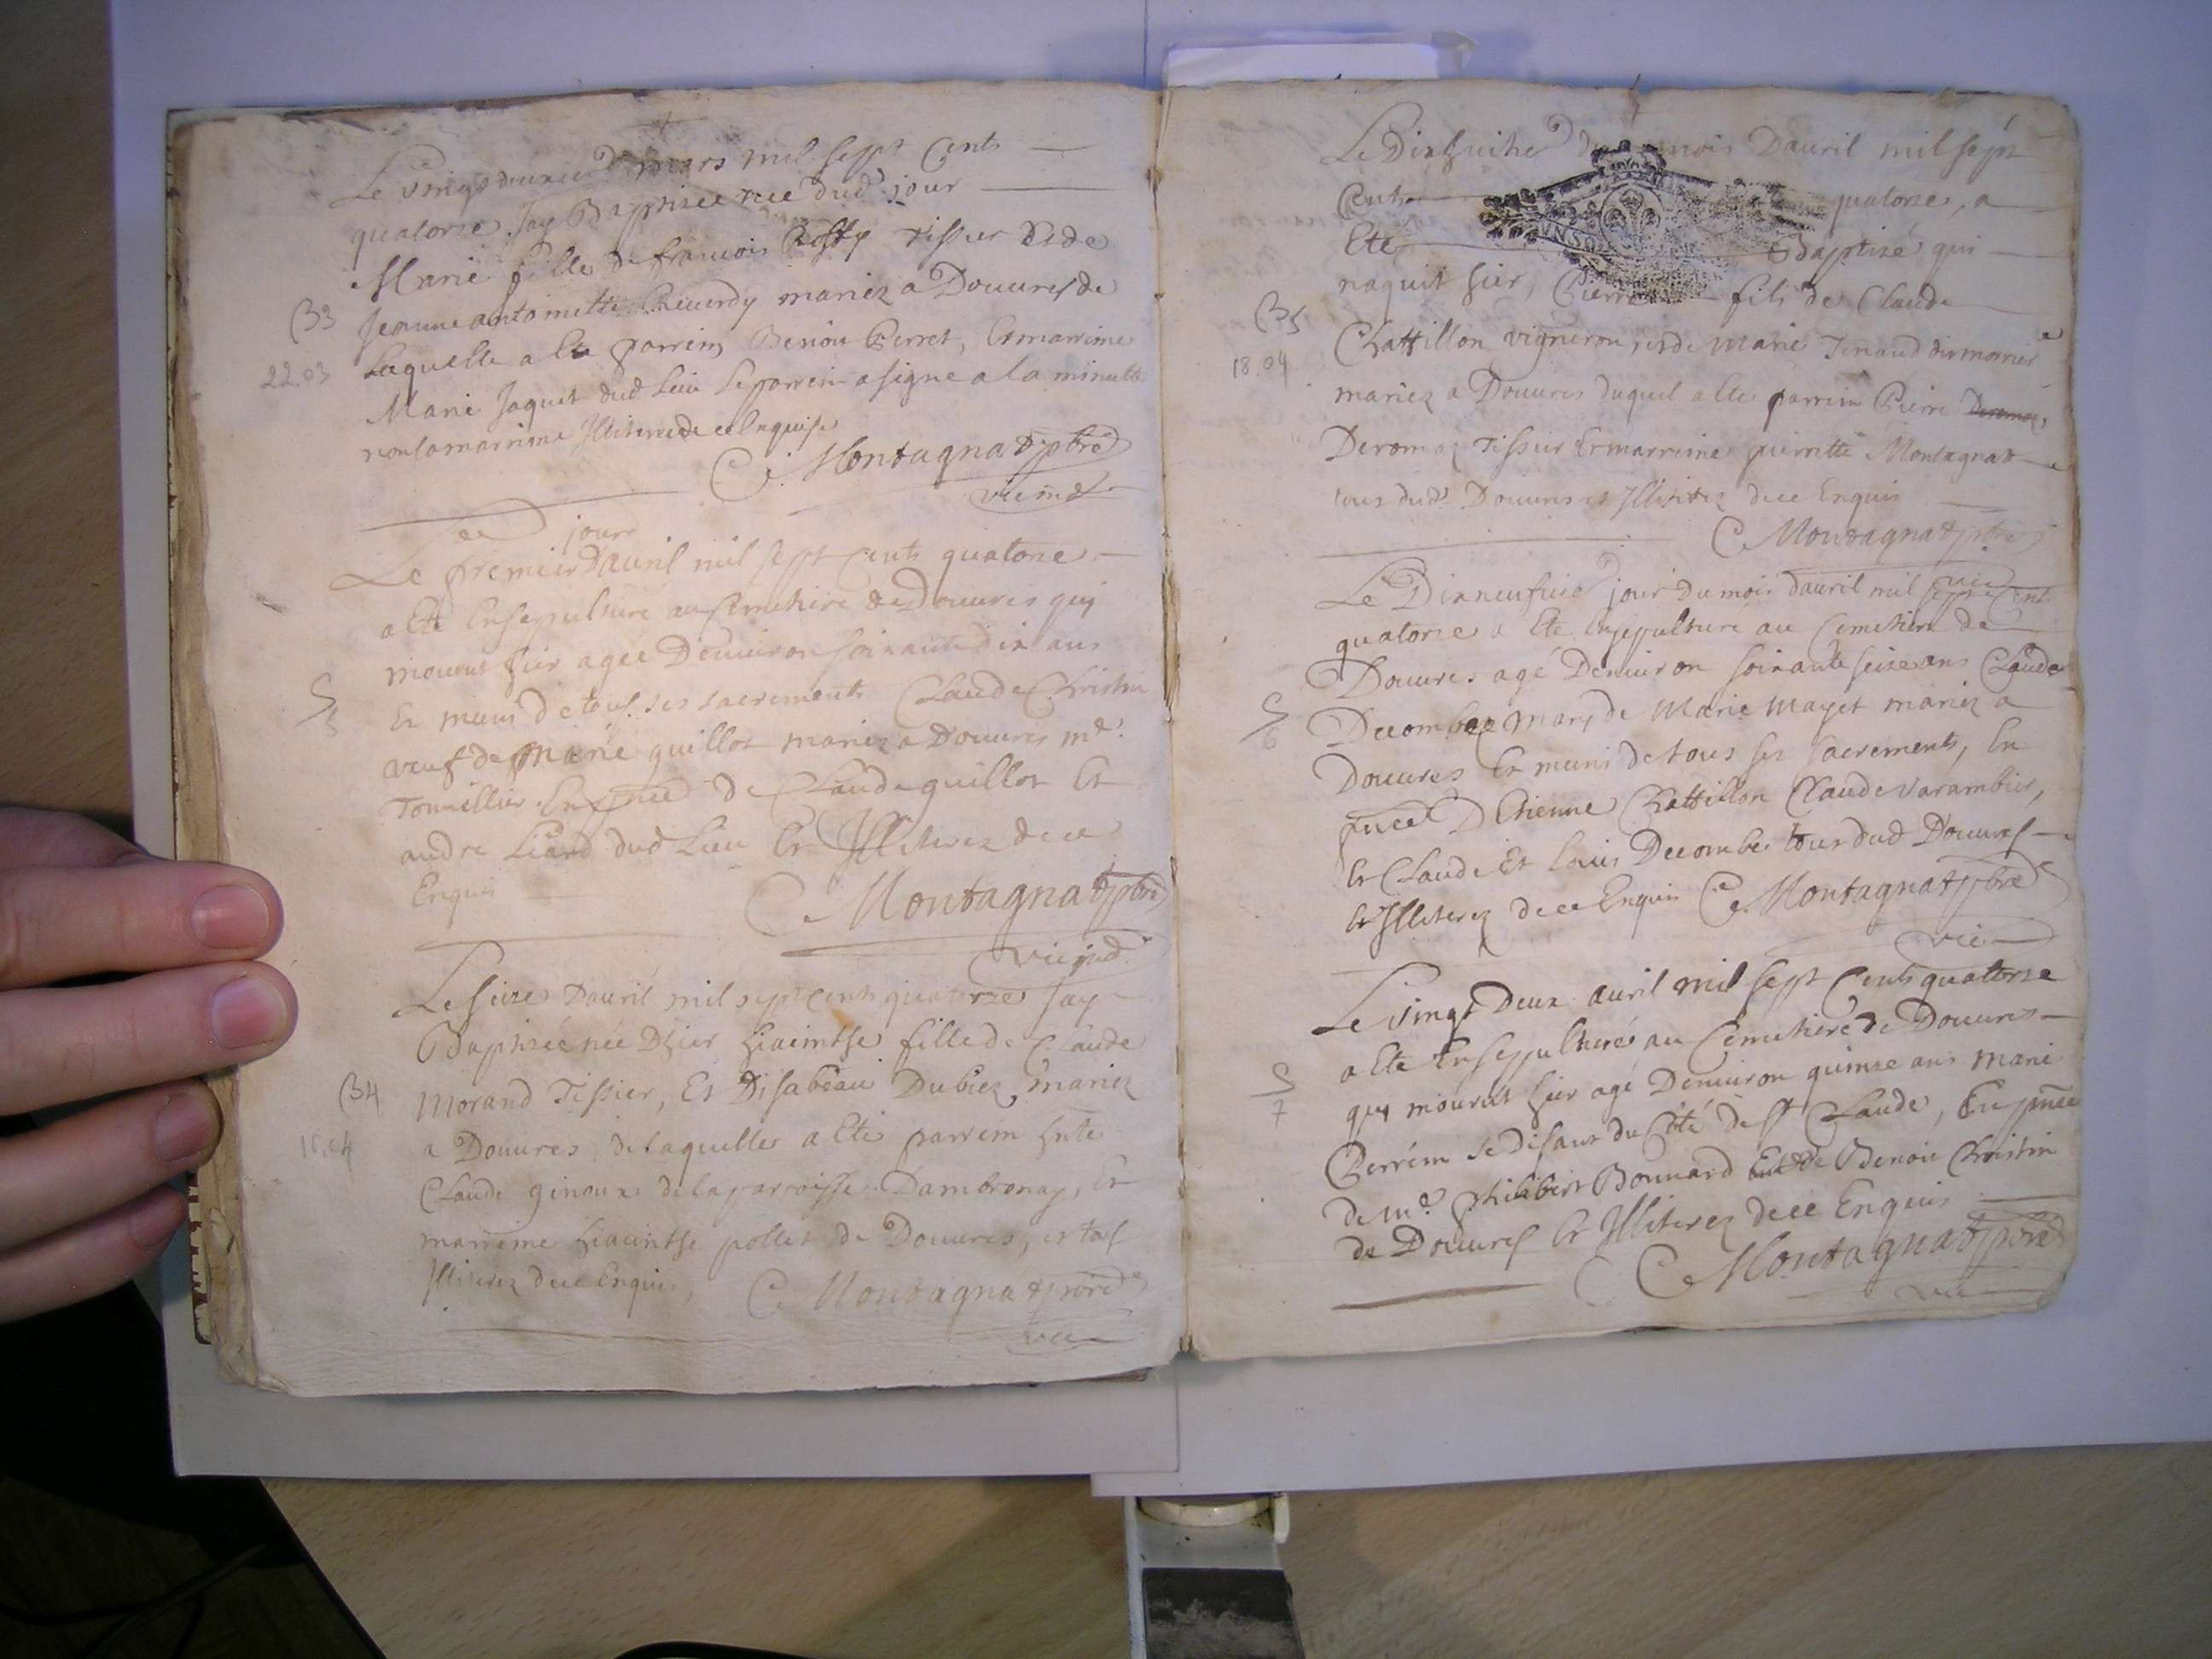 Le vingt deuxie de mars mil sept cents
quatorze Jay Baptisée née dud jour
Marie fille de francois tissier et de
B3
Jeanne antoinette Reverdy mariez a Douures de
22.03
Laquelle a ete parrein Benoit Perret, et marrine
Marie Jaquet dud Lieu Le parrein a signe a la minutte
non la marrine Illiteree de ce enquise
C. Montagnat pbre
vic
jour
Le premier dauril mil sept cents quatorze
a ete ensepulturé au cemetiere de Douures qui
mourut hier agée Denuiron soixante dix ans
S
3
Et muni de tous ses sacrements Claude Christin
veuf de Marie guillot mariez a Douures md.
Tonnillier. En pnce de Claude guillot Et
andre Liard dud Lieu Et Illiterez de ce
Enquis
C Montagnat pbre
vic ind.
Le seize Dauril mil sept cents quatorze Jay
Baptisée née Dhier hiainthe fille de Claude
B4
Morand Tissier, Et Disabeau Dubiez mariez
a Douures, de laquelle a ete parrein hnte
16.04
Claude ginoux de la parroisse Dambronay, Et
marreine hiacinthe pollet de Douures, et tous
Illiterez de ce Enquis, C. Montagnat pbre
vic
Le Dixhuitie du mois Dauril mil sept
Cents quatorze, a
Ete Baptizé qui
naquit hier, Pierre fils de Claude
B5
Chattillon vigneron, et de Marie Tenaud
18.04
mariez a Douures duquel a ete parrein Pierre
Deromaz Tissier Et marreine pierrette Montagnat
tous dud Douures et Illiterez de ce Enquis
C Montagnat pbre
vic
Le Dixneufuie jour du mois dauril mil sept Cent
quatorze a Ete ensepulturé au Cemetiere de
Douures agé Denuiron soixante seize ans Claude
S
6
Decombe mary de Marie mayet mariez a
Douures Et muni de tous ses sacrements, En
pnce D Etienne Chattillon Claude Varambier,
Et Claude Et Louis Decombe tous dud Douures
Et Illiterez de ce Enquis C. Montagnat pbre
vic
Le vingt Deux auril mil sept Cents quatorze
a Ete Ensepulturé au Cemetiere de Douures
S
7
qui mourut hier agé Denuiron quinze ans Marie
Perrein se disant du Côté de St Claude, En pnce
de md. philibert Bonnard Et de Benoit Christin
de Douures Et Illiterez de ce Enquis
C Montagnat pbre
vic